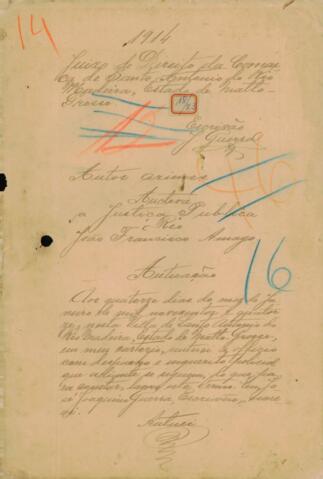 14
1914
Juizo de Direito da Comar-
ca de Santo Antonio do Rio
Madeira, Estado de Matto-
Grosso
18/83
12
Escrivão
Guerra
Autos crimes
Auctora
a Justiça Publica
Reo
João Francisco
16
Autuação
Aos quatorze dias do mez de Ja-
neiro de mil novecentos e quator-
ze, nesta Villa de Santo Antonio do
Rio Madeira, Estado de Matto Grosso,
em meu cartorio, autuo o officio
com despacho e inquerito policial
que adiante se seguem, do que pa-
ra constar, lavro este termo. Eu, Jo-
sé Joaquim Guerra, Escrivão,
Autuei